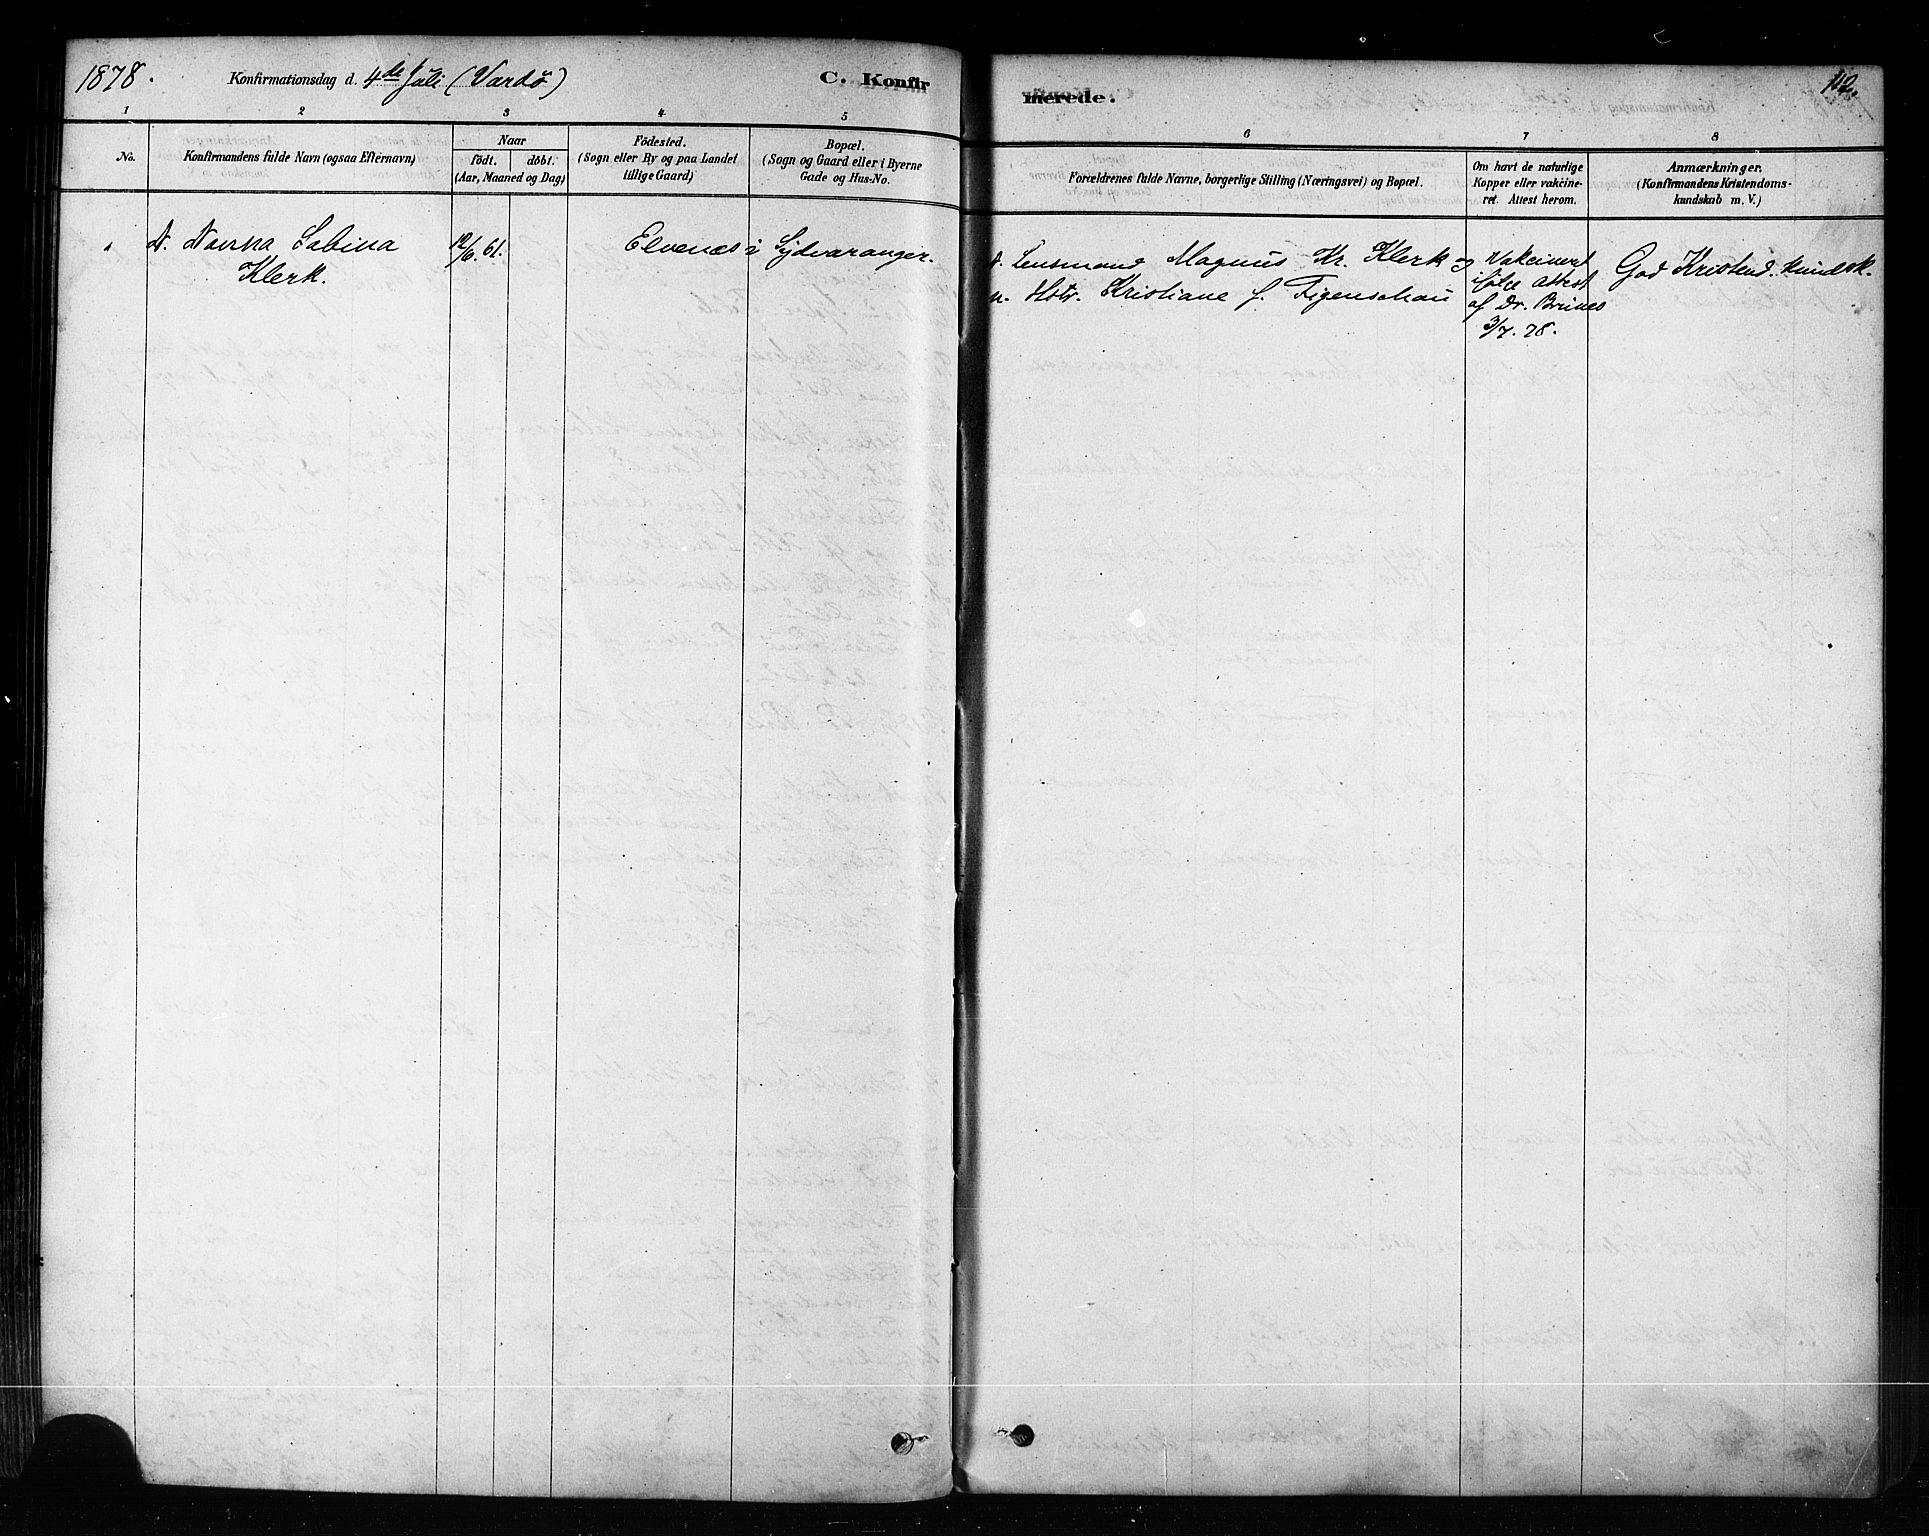 1878.
Konfirmationsdag d. 4de Juli (Vardö)
C. Konfir
merede.
112.
1 2 3 4 5
6 7 8
No.
Konfirmandens fulde Navn (ogsaa Efternavn)
Naar
födt. döbt.
(Aar, Maaned og Dag)
Födested.
(Sogn eller By og paa Landet
tillige Gaard)
Bopæl.
(Sogn og Gaard eller i Byerne
Gade og Hus-No.
Forældrenes fulde Navne, borgerlige Stilling (Næringsvei) og Bopæl.
Om havt de naturlige
Kopper eller vakcine-
ret. Attest herom.
Anmærkninger.
(Konfirmandens Kristendoms-
kundskab m. V.)
N. Navna Sabina
Klerk.
12/6. 61.
Elvenæs i Sydvaranger.
Lensmand Magnus Kr. Klerk og
n. Hstr. Kristiane f. Figenschau
Vakcinert
ifölge Attest
af Dr.
3/7. 78.
God Kristend. kundsk.